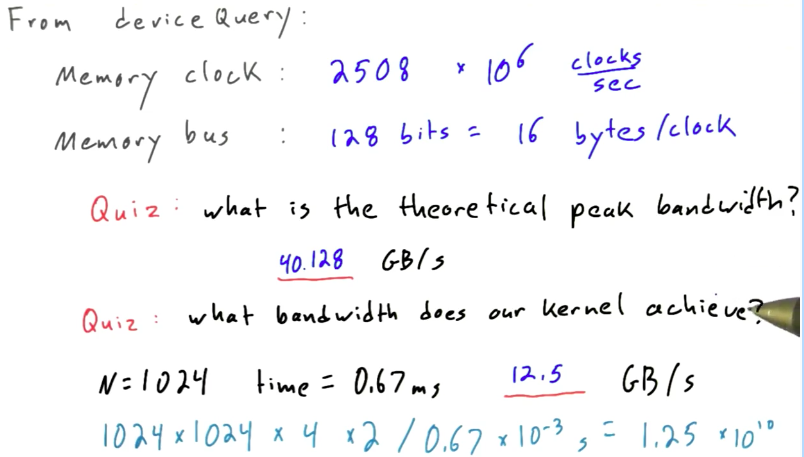 From deviceQuery:
Memory clock : 2508 * 10^6 clocks/sec
Memory bus : 128 bits = 16 bytes/clock
Quiz: what is the theoretical peak bandwidth?
40.128 GB/s
Quiz: what bandwidth does our kernel achieve?
N=1024 time = 0.67 ms 12.5 GB/s
1024 × 1024 × 4 × 2 / 0.67 × 10^-3 s = 1.25 * 10^10